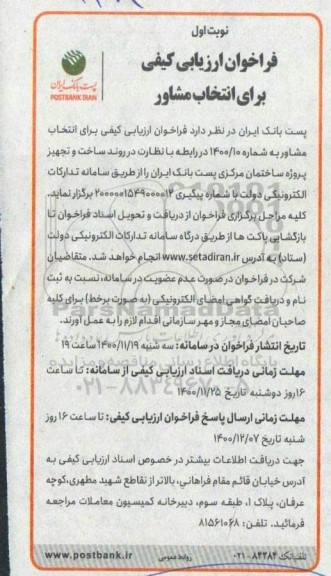 نوبت اول
فراخوان ارزیابی کیفی
برای انتخاب مشاور
پست بانک ایران
POSTBANK IRAN
پست بانک ایران در نظر دارد فراخوان ارزیابی کیفی برای انتخاب
مشاور به شماره ۱۴۰۰/۱۰ در رابطه با نظارت در روند ساخت و تجهیز
پروژه ساختمان مرکزی پست بانک ایران را از طریق سامانه تدارکات
الکترونیکی دولت با شماره پیگیری ۲۰۰۰۰۰۱۵۴۹۰۰۰۰۱۲ برگزار نماید.
کلیه مراحل برگزاری فراخوان از دریافت و تحویل اسناد فراخوان تا
بازگشایی پاکت ها از طریق درگاه سامانه تدارکات الکترونیکی دولت
(ستاد) به آدرس www.setadiran.ir انجام خواهد شد. متقاضیان
شرکت در فراخوان در صورت عدم عضویت در سامانه، نسبت به ثبت
نام و دریافت گواهی امضای الکترونیکی (به صورت برخط) برای کلیه
صاحبان امضای مجاز و مهر سازمانی اقدام لازم را به عمل آورند.
تاریخ انتشار فراخوان در سامانه: سه شنبه ۱۴۰۰/۱۱/۱۹ ساعت ۱۹
مهلت زمانی دریافت اسناد ارزیابی کیفی از سامانه: تا ساعت
۱۶ روز دوشنبه تاریخ ۱۴۰۰/۱۱/۲۵
مهلت زمانی ارسال پاسخ فراخوان ارزیابی کیفی: تا ساعت ۱۶ روز
شنبه تاریخ ۱۴۰۰/۱۲/۰۷
جهت دریافت اطلاعات بیشتر در خصوص اسناد ارزیابی کیفی به
آدرس خیابان قائم مقام فراهانی، بالاتر از تقاطع شهید مطهری، کوچه
عرفان، پلاک ۱، طبقه سوم، دبیرخانه کمیسیون معاملات مراجعه
فرمائید. تلفن: ۸۱۵۶۱۰۶۸
تلفنبانک ۸۴۳۸۴-۰۲۱ روابط عمومی www.postbank.ir
ParsNamadData
پایگاه اطلاع رسانی مناقصه و مزایده
۰۲۱-۸۸۳۴۹۶۷۰-۵